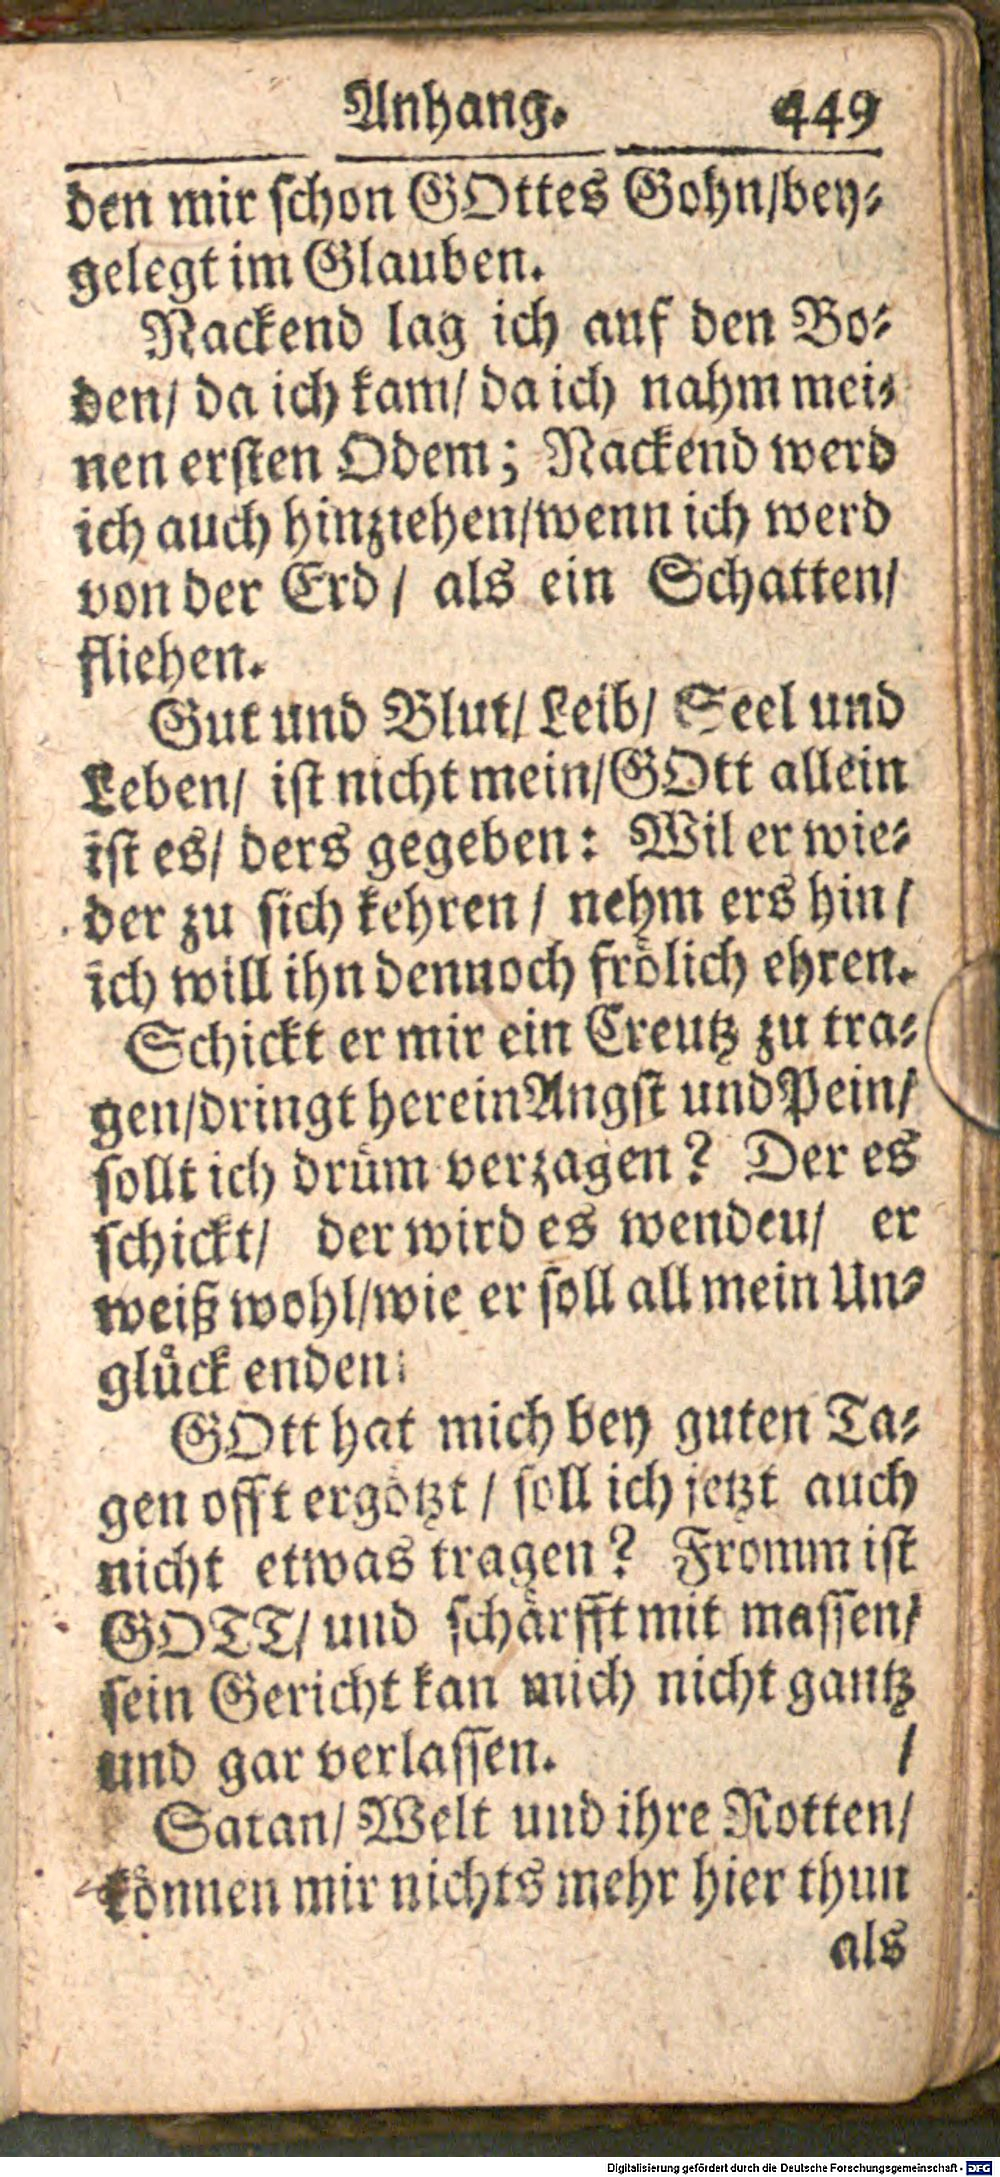 Anhang. 449
den mir schon GOttes Gohn/bey-
gelegt im Glauben.
Nackend lag ich auf den Bo-
den/ da ich kam/ da ich nahm mei-
nen ersten Odem; Nackend werd
ich auch hinziehen/wenn ich werd
von der Erd/ als ein Schatten/
fliehen.
Gut und Blut/ Leib/ Seel und
Leben/ ist nicht mein/GOtt allein
ist es/ ders gegeben: Wil er wie-
der zu sich kehren/ nehm ers hin/
ich will ihn dennoch frölich ehren.
Schickt er mir ein Creutz zu tra-
gen/dringt herein Angst und Pein/
sollt ich drüm verzagen? Der es
schickt/ der wird es wendeu/ er
weiß wohl/wie er soll all mein Un-
glück enden:
GOtt hat mich bey guten Ta-
gen offt ergötzt/ soll ich jetzt auch
nicht etwas tragen? Fromm ist
GOTT/ und schärfft mit massen/
sein Gericht kan mich nicht gantz
und gar verlassen. /
Satan/ Welt und ihre Rotten/
können mir nichts mehr hier thun
als
Digitalisierung gefördert durch die Deutsche Forschungsgemeinschaft - DFG